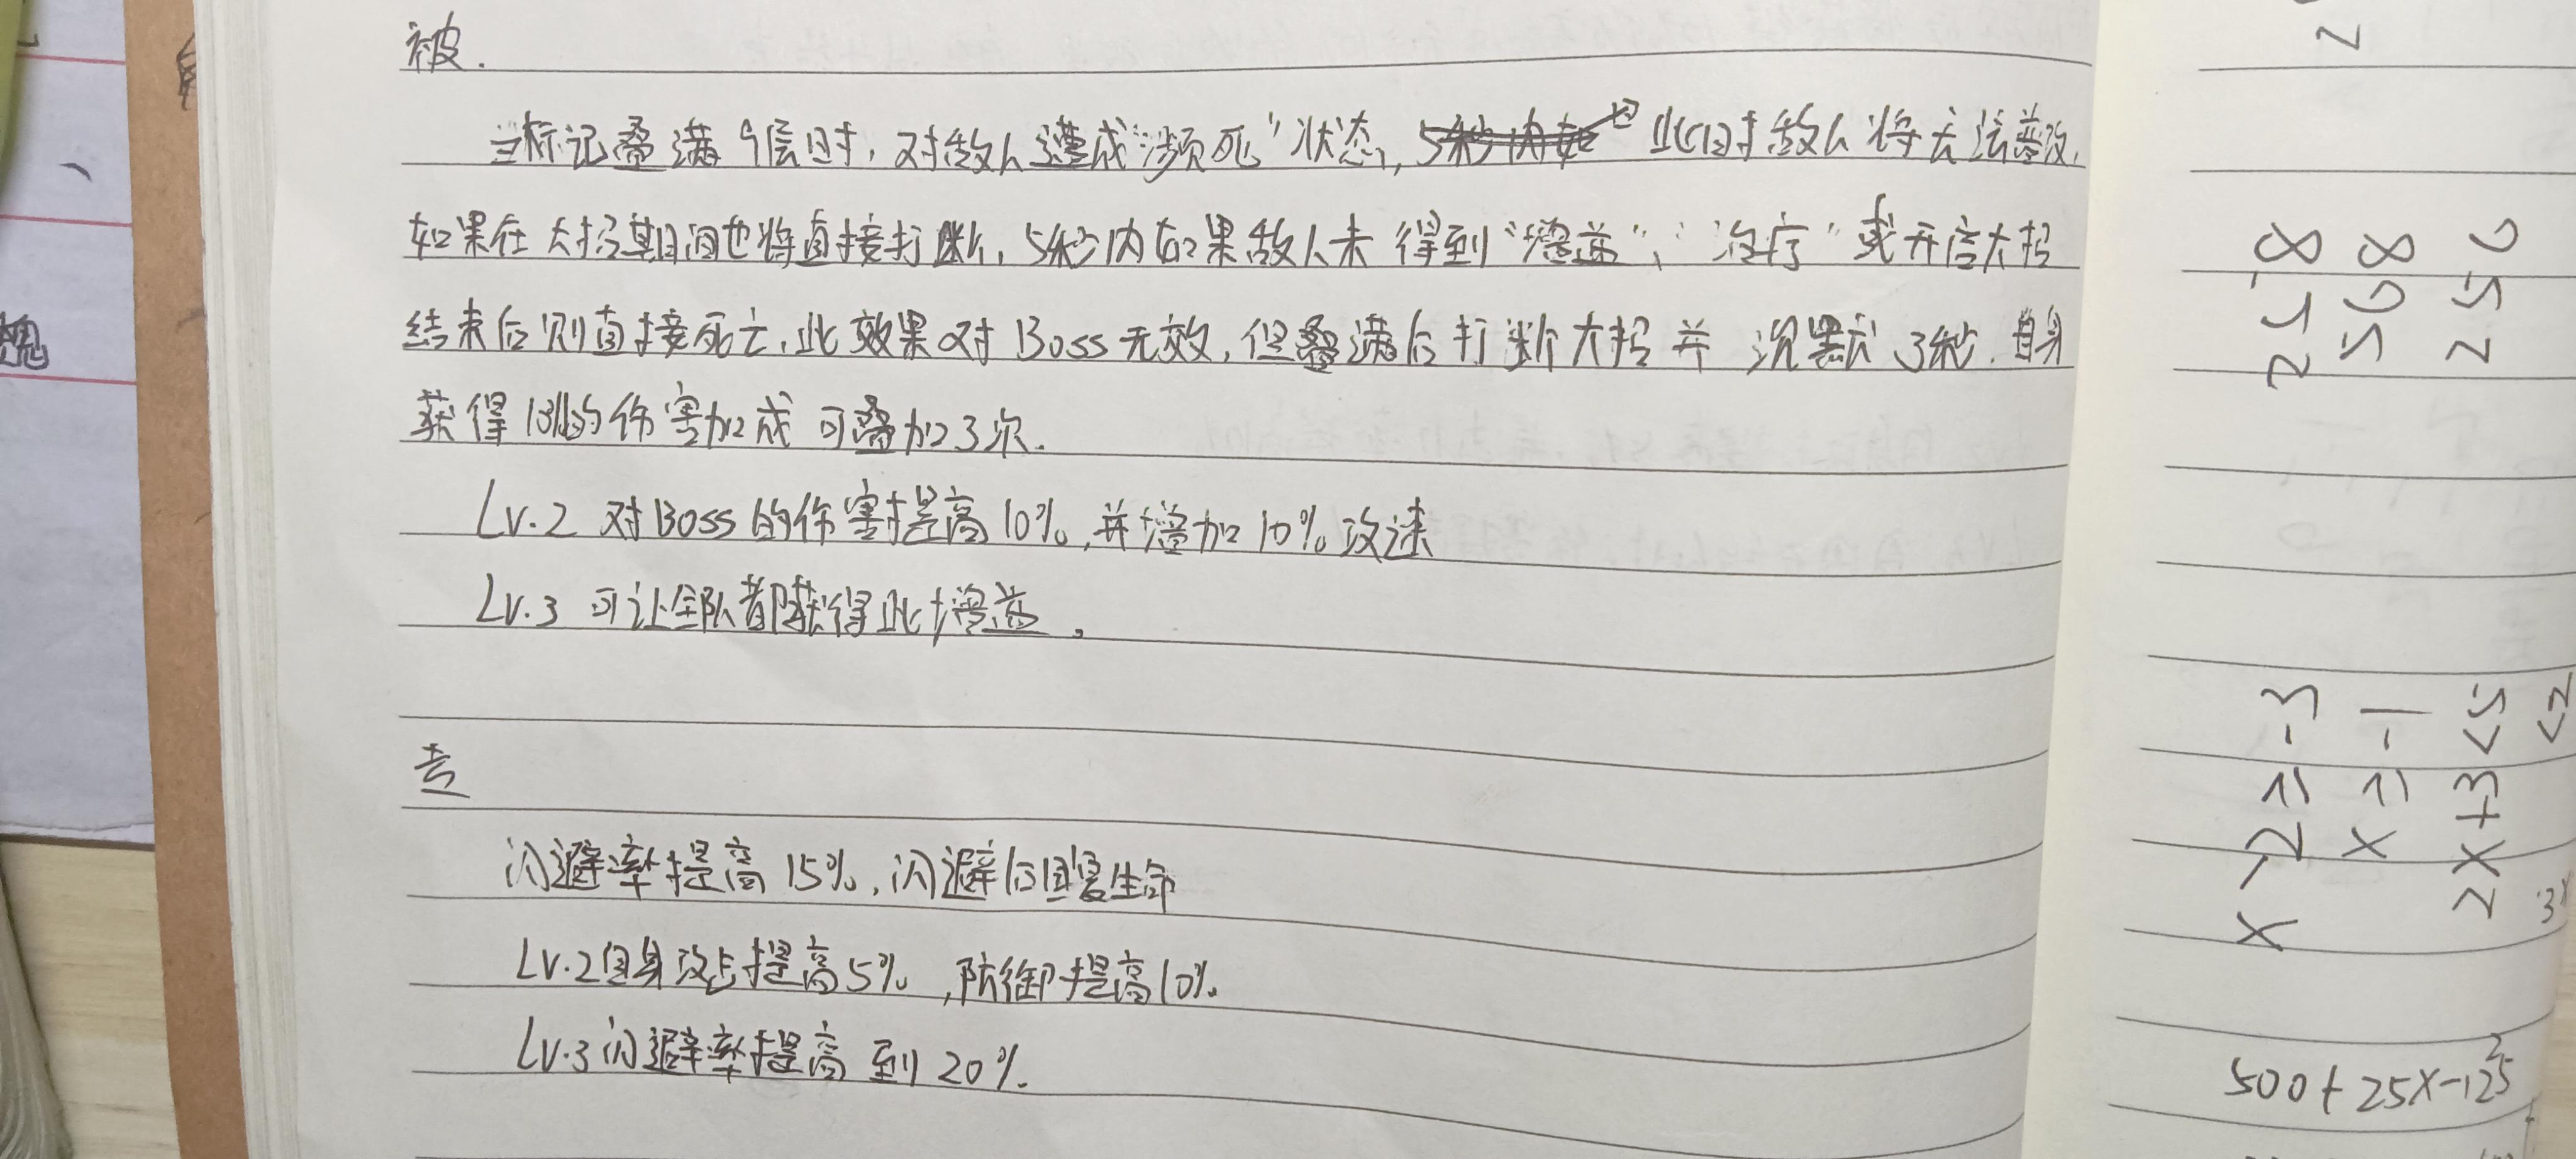 被.
当标记叠满9层时,对敌人遭成“濒死”状态,此时敌人将无法普攻,
如果在大招期间也将直接打断,5秒内如果敌人未得到“增益”、“治疗”或开启大招
结束后则直接死亡,此效果对Boss无效,但叠满后打断大招并沉默3秒.自身
获得的伤害加成可叠加3次.
Lv.2 对Boss的伤害提高10%,并增加10%攻速
Lv.3 可让全队都获得此增益。
专
闪避率提高15%,闪避后回复生命
Lv.2自身攻击提高5%,防御提高10%
Lv.3闪避率提高到20%.
258
568
256
x-2≥-3
x≥-1
2x+3<5
500+25x-125